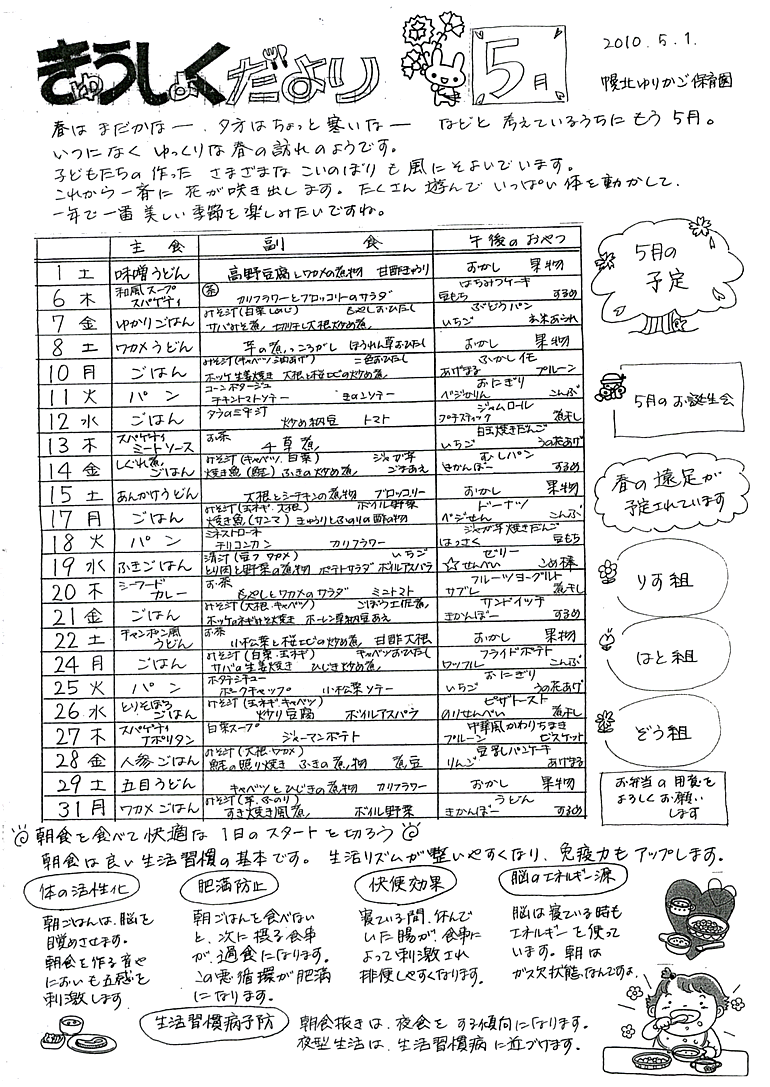 きゅうしょくだより
5月
2010.5.1.
幌北ゆりかご保育園
春は まだかなー、夕方はちょっと寒いなー などと 考えているうちに もう 5月。
いつになく ゆっくりな 春の訪れのようです。
子どもたちの 作った さまざまな こいのぼり も 風にそよいでいます。
これから一斉に 花が咲き出します。たくさん 遊んで いっぱい 体を動かして、
一年で一番 美しい季節を楽しみたいですね。
主食 副食 午後のおやつ
1 土 味噌うどん 高野豆腐とワカメの煮物 甘酢きゅうり おかし 果物
6 木 和風スープスパゲティ 茶 カリフラワーとブロッコリーのサラダ はちみつケーキ 豆もち するめ
7 金 ゆかりごはん みそ汁(白菜 しめじ) もやしおひたし サバみそ煮、切り干し大根炒め煮 ぶどうパン いちご お米あられ
8 土 ワカメうどん 芋の煮っころがし ほうれん草おひたし おかし 果物
10 月 ごはん みそ汁(キャベツ 油あげ) 二色おひたし ホッケ生姜焼き 大根と桜エビの炒め煮 ふかしイモ あげまる プルーン
11 火 パン コーンポタージュ チキントマトソテー きのこソテー おにぎり ベジかりん こんぶ
12 水 ごはん タラの三平汁 炒め納豆 トマト ジャムロール プチスティック 煮干し
13 木 スパゲティミートソース お茶 千草煮 白玉焼きだんご いちご うの花あげ
14 金 しぐれ煮ごはん みそ汁(キャベツ、白菜) ジャガ芋 焼き魚(鮭) ふきの炒め煮 ごまあえ むしパン きかんぼー するめ
15 土 あんかけうどん 大根とシーチキンの煮物 ブロッコリー おかし 果物
17 月 ごはん みそ汁(玉ネギ、大根) ボイル野菜 焼き魚(サンマ) きゅうりとふのりの酢の物 ドーナツ ベジせん こんぶ
18 火 パン ミネストローネ チリコンカン カリフラワー ジャガ芋焼きだんご はっさく 豆もち
19 水 ふきごはん 清汁(豆フ ワカメ) いちご とり肉と野菜の煮物 ポテトサラダ ボイルアスパラ ゼリー ☆せんべい こめ棒
20 木 シーフードカレー お茶 もやしとワカメのサラダ ミニトマト フルーツヨーグルト サブレ 煮干し
21 金 ごはん みそ汁(大根、キャベツ) ごぼう工伝煮 ホッケのネギみそ焼き ホーレン草納豆あえ サンドイッチ きかんぼー するめ
22 土 チャンポン風うどん お茶 小松菜と桜エビの炒め煮 甘酢大根 おかし 果物
24 月 ごはん みそ汁(白菜・玉ネギ) キャベツおひたし サバの生姜焼き ひじき炒め煮 フライドポテト ワッフル こんぶ
25 火 パン ホタテシチュー ポークチャップ 小松菜ソテー おにぎり いちご うの花あげ
26 水 とりそぼろごはん みそ汁(玉ネギ、キャベツ) 炒り豆腐 ボイルアスパラ ピザトースト のりせんべい 煮干し
27 木 スパゲティナポリタン 白菜スープ ジャーマンポテト 中華風かわりちまき プルーン ビスケット
28 金 人参ごはん みそ汁(大根・ワカメ) 鮭の照り焼き ふきの煮物 煮豆 豆乳パンケーキ りんご あげまる
29 土 五目うどん キャベツとひじきの煮物 カリフラワー おかし 果物
31 月 ワカメごはん みそ汁(芋、ふのり) すき焼き風煮 ボイル野菜 うどん きかんぼー するめ
5月の
予定
5月のお誕生会
春の遠足が
予定されています
りす組
はと組
ぞう組
お弁当の用意を
よろしくお願い
します
朝食を食べて快適な 1日のスタートを切ろう
朝食は良い生活習慣の基本です。生活リズムが整いやすくなり、免疫力もアップします。
体の活性化
朝ごはんは、脳を
目覚めさせます。
朝食を作る音や
においも五感を
刺激します
肥満防止
朝ごはんを食べない
と、次に摂る食事
が、過食になります。
この悪循環が肥満
になります。
快便効果
寝ている間、休んで
いた腸が、食事に
よって刺激され
排便しやすくなります。
脳のエネルギー源
脳は寝ている時も
エネルギーを使って
います。朝は
ガス欠状態なんですよ。
生活習慣病予防
朝食抜きは、夜食をする傾向になります。
夜型生活は、生活習慣病に近づけます。